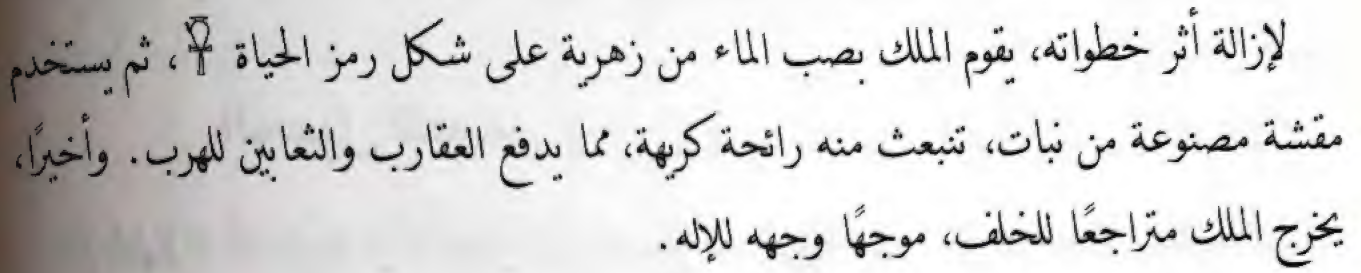 لإزالة أثر خطواته، يقوم الملك بصب الماء من زهرية على شكل رمز الحياة ☥، ثم يستخدم
مقشة مصنوعة من نبات، تنبعث منه رائحة كريهة، مما يدفع العقارب والثعابين للهرب. وأخيرًا،
يخرج الملك متراجعًا للخلف، موجهًا وجهه للإله.